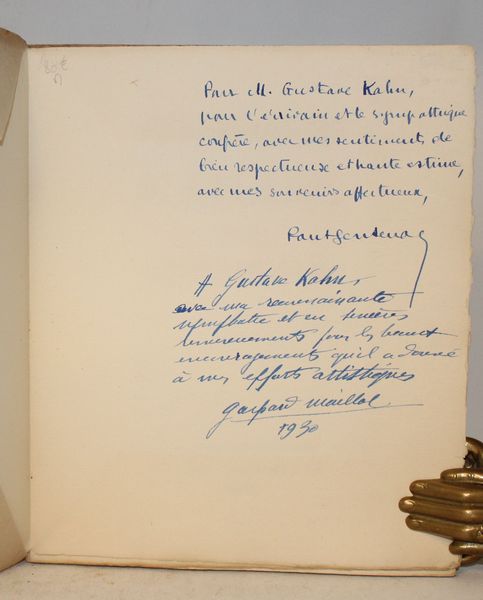 80 €
Pour M. Gustave Kahn,
pour l'écrivain et le sympathique
confrère, avec mes sentiments de
bien respectueuse et haute estime,
avec mes souvenirs affectueux,
Paul Gentenac
A Gustave Kahn,
avec ma reconnaissante
sympathie et en sincères
remerciements pour les beaux
encouragements qu'il a donné
à mes efforts artistiques
Gaspard Maillol
1930